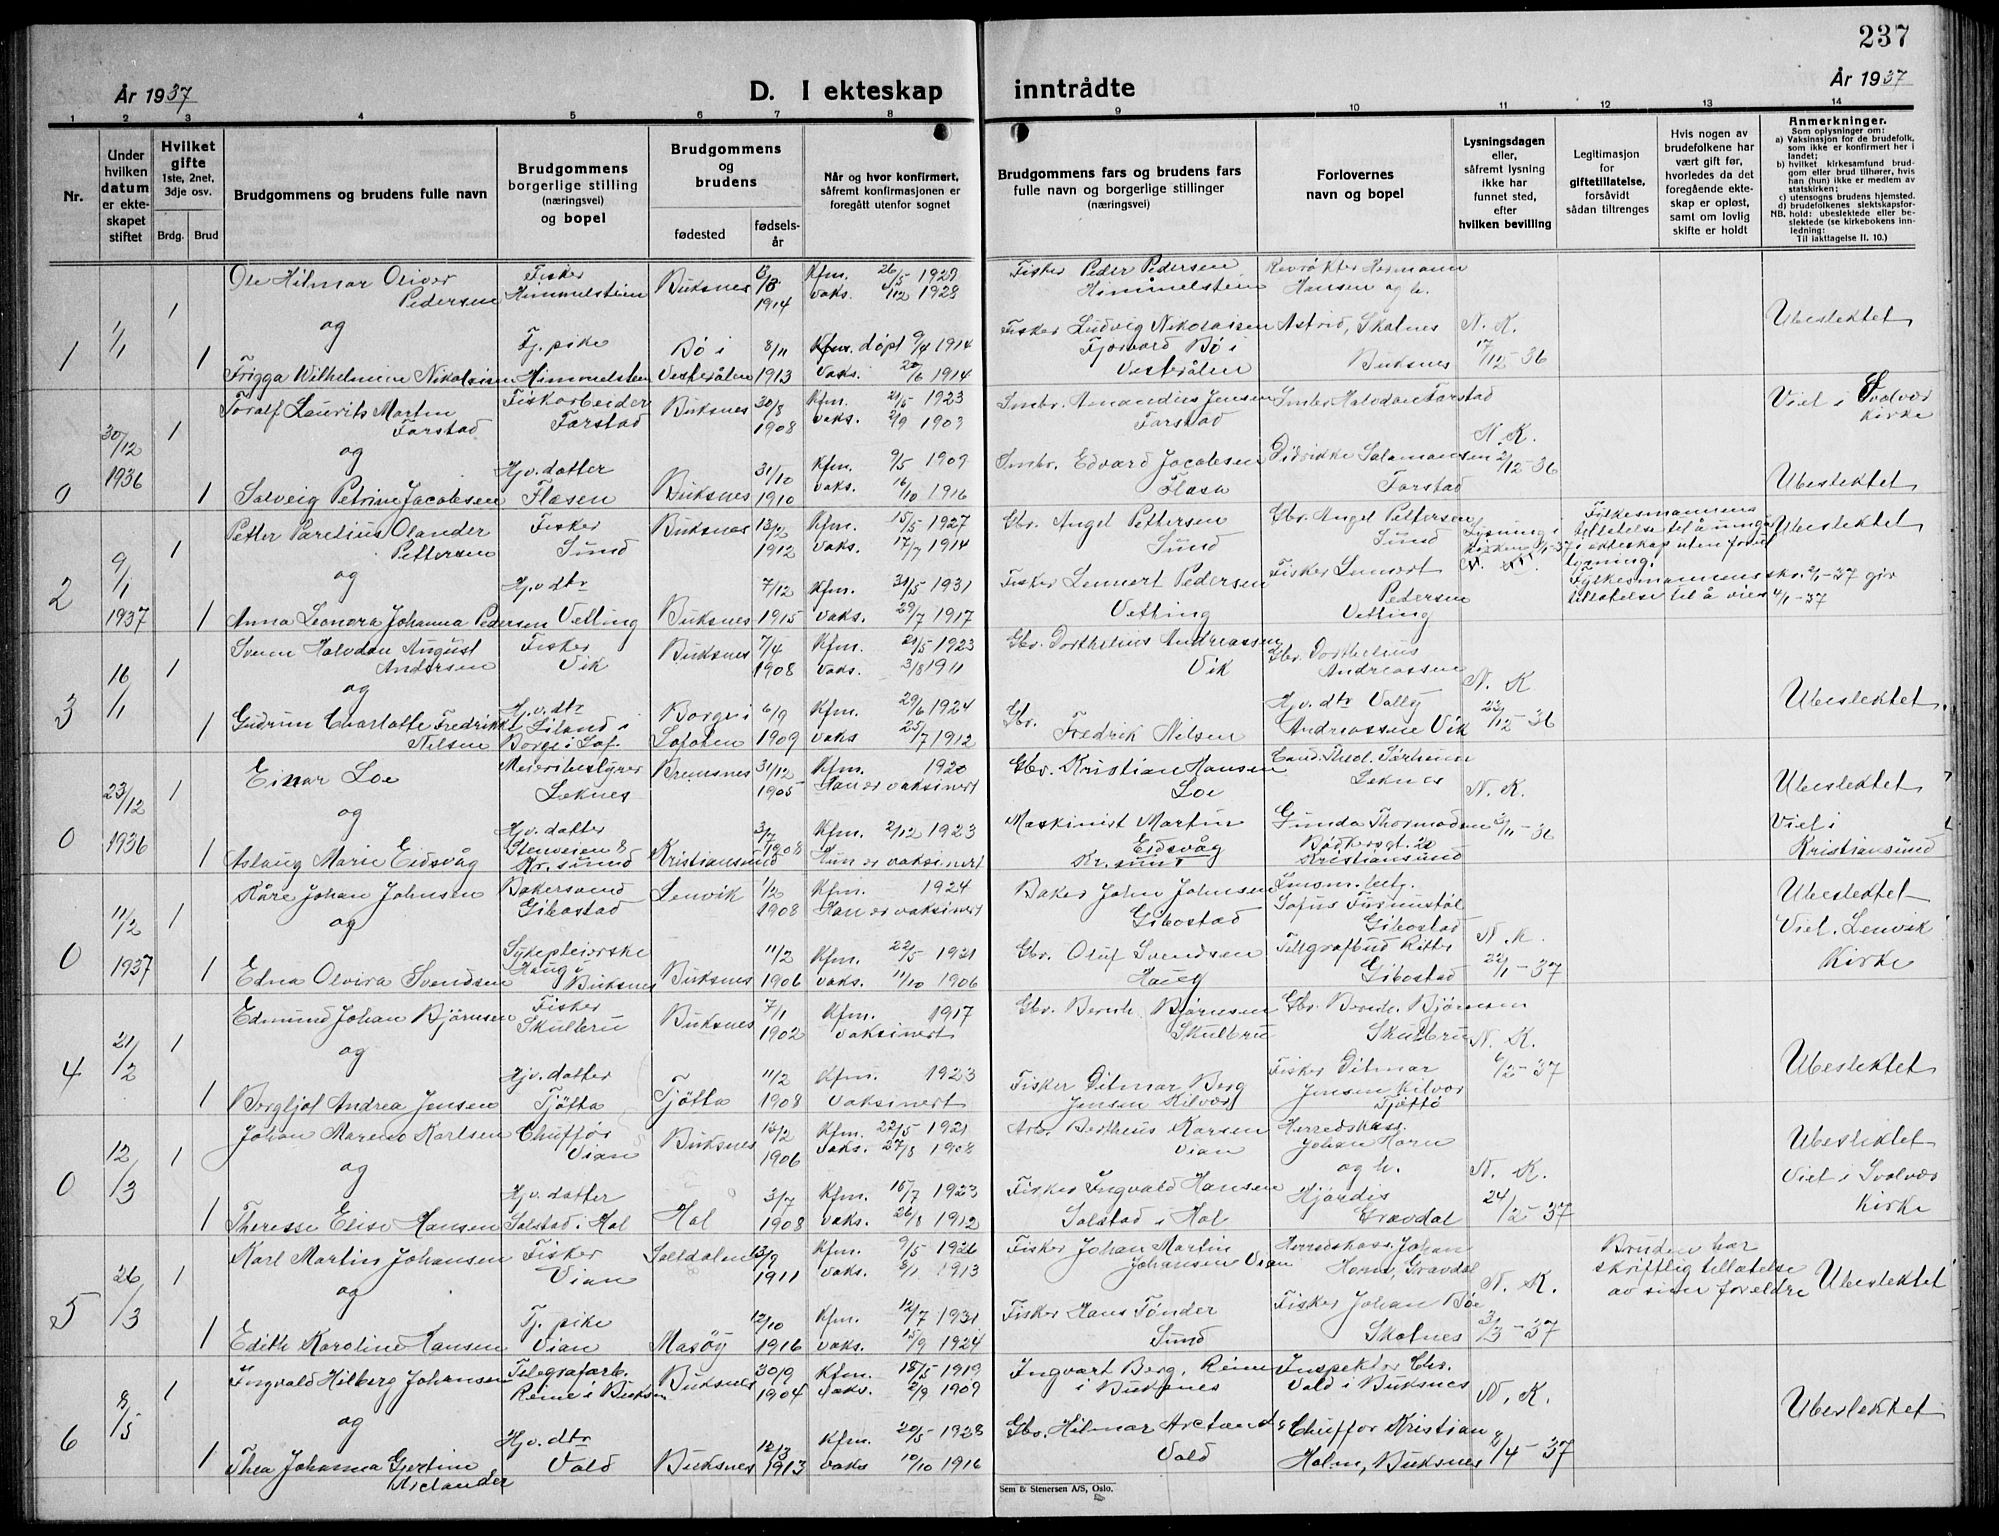 237
År 1937
D. I ekteskap inntrådte
År 1937
1 2 3 4 5 6 7 8 9 10 11 12 13 14
Nr.
Under hvilken datum er ekteskapet stiftet
Hvilket gifte 1ste, 2net, 3dje osv.
Brdg. Brud
Brudgommens og brudens fulle navn
Brudgommens borgerlige stilling (næringsvei) og bopel
Brudgommens og brudens
fødested
fødselsår
Når og hvor konfirmert, såfremt konfirmasjonen er foregått utenfor sognet
Brudgommens fars og brudens fars fulle navn og borgerlige stillinger (næringsvei)
Forlovernes navn og bopel
Lysningsdagen eller, såfremt lysning ikke har funnet sted, efter hvilken bevilling
Legitimasjon for giftetillatelse, forsåvidt sådan tiltrenges
Hvis nogen av brudefolkene har vært gift før, hvorledes da det foregående ekteskap er opløst, samt om lovlig skifte er holdt
Anmerkninger.
Som oplysninger om:
a) Vaksinasjon for de brudefolk, som ikke er konfirmert her i landet;
b) hvilket kirkesamfund brudgom eller brud tilhører, hvis han (hun) ikke er medlem av statskirken;
c) utensogns brudens hjemsted.
d) brudefolkenes slektskapsforhold: ubeslektede eller beslektede (se kirkebokens innledning:
NB. Til iakttagelse II. 10.)
1 1/1 1 Ole Hilmar Oliver Pedersen Fisker Himmelstein Buksnes 1914 Kfm. 26/5 1929 vaks. 5/12 1928 Fisker Peder Pedersen Himmelstein Hermann Hansen og h.
og
1 Frigga Wilhelmine Nikolaisen Tj. pike Himmelstein Bø i Vesterålen 8/11 1913 døpt 9/4 1914 vaks. 20/6 1914 Fisker Ludvig Nikolaisen Bø i Vesterålen Astrid, Skotnes Buksnes N. K. 17/12-36 Ubeslektet
0 30/12 1936 1 Toralf Laurits Martin Farstad Fiskarbeider Farstad Buksnes 30/8 1908 Kfm. 21/5 1923 vaks. 2/9 1909 Inmbr. Amandus Jensen Farstad Inmbr. Halvdan Farstad Viet i Svolvær Kirke
og
1 Solveig Petrine Jacobsen Hjv. datter Flæsen Buksnes 31/10 1910 Kfm. 9/5 1909 vaks. 16/10 1916 Inmbr. Edvard Jacobsen Flæsa Didrikke Salamonsen Farstad N. K. 2/12-36 Ubeslektet
2 9/1 1937 1 Petter Parelius Olander Pettersen Fisker Sund Buksnes 13/2 1912 Kfm. 15/5 1927 vaks. 17/7 1914 Gbr. Angel Pettersen Sund Gbr. Angel Pettersen Sund Lysning i Kirken 3/1-37 N. K. Fylkesmannens tillatelse til å inngå i ekteskap uten forut lysning. Ubeslektet
og
1 Anna Leonora Johanna Pedersen Hjv. dtr Vetting Buksnes 7/12 1915 Kfm. 31/5 1931 vaks. 29/7 1917 Fisker Lennert Pedersen Vetting Fisker Lennert Pedersen Vetting Fylkesmannens skr. 2/1-37 giv tillatelse til å vies 4/1-37
3 16/1 1 Svenn Halvdan August Andersen Fisker Vik Buksnes 7/4 1908 Kfm. 21/5 1923 vaks. 3/8 1911 Gbr. Dorthelius Andreassen Vik Gbr. Dorthelius Andreassen
og
1 Gudrun Charlotte Fredrikke Nilsen Hjv. dtr Liland i Borge i Lof. Borge i Lofoten 6/9 1909 Kfm. 29/6 1924 vaks 25/7 1912 Gbr. Fredrik Nilsen Hjv. dtr Vally Andreassen Vik N. K 23/12-36 Ubeslektet
0 23/12 1936 1 Einar Loe Meieribestyrer Leknes Bremsnes 31/12 1905 Kfm. 1920 Han er vaksinert Gbr. Kristian Hansen Loe Cand. Theol. Leknes N. K. Ubeslektet
og
1 Aslaug Marie Eidsvåg Hjv. datter Stenveien 8 Kr. sund Kristiansund 3/7 1908 Kfm. 2/12 1923 Hun er vaksinert Maskinist Martin Eidsvåg Kr. sund Gunda Thormodsen Bødkergt. 20 Kristiansund 3/11-36 Viet i Kristiansund
0 11/2 1937 1 Kåre Johan Johnsen Bakersvend Gibostad Lenvik 1/2 1908 Kfm. 1924 Han er vaksinert Baker John Johnsen Gibostad Lensm. betj. Sofus Furustøl Gibostad Ubeslektet
og
1 Edna Olvira Svendsen Sykepleierske Haug i Buksnes Buksnes 11/2 1906 Kfm. 22/5 1921 vaks. 11/10 1906 Gbr. Oluf Svendsen Haug Telegrafbud Ritter Gibostad N. K. 22/1-37 Viet. Lenvik Kirke
4 21/2 1 Edmund Johan Bjørnsen Fisker Skulbru Buksnes 7/1 1902 Kfm. 1917 vaksinert Gbr. Bernh. Bjørnsen Skulbru Gbr. Bernh. Bjørnsen Skulbru N. K.
og
1 Borgljot Andrea Jensen Hjv. datter Tjøtta Tjøtta 11/2 1908 Kfm. 1923 vaksinert Fisker Ditmar Berg Jensen Kilvær Fisker Ditmar Jensen Kilvær Tjøttø 6/2-37 Ubeslektet
0 12/3 1 Johan Mareno Karlsen Chuffør Vian Buksnes 12/2 1906 Kfm. 22/5 1921 vaks. 27/8 1908 Arb. Bertheus Karsen Vian Herredskass. Johan Horn og h. Ubeslektet
og
1 Theresse Elise Hansen Hjv. datter Solstad i Hol Hol 3/7 1908 Kfm. 15/7 1923 vaks. 26/8 1912 Fisker Ingvald Hansen Solstad i Hol Hjørdis Gravdal N. K. 24/2-37 Viet i Svolvær Kirke
5 26/3 1 Karl Martin Johansen Fisker Vian Saltdalen 13/9 1911 Kfm. 9/5 1926 vaks. 8/1 1913 Fisker Johan Martin Johansen Vian Herredskass. Johan Horn, Gravdal N. K. Bruden har skriftlig tillatelse av sine foreldre Ubeslektet
og
1 Edith Karoline Hansen Tj. pike Vian Masøy 12/10 1916 Kfm. 12/7 1931 vaks. 15/9 1924 Fisker Hans Tønder Sund Fisker Johan Bøe Skotnes 3/3-37
6 8/5 1 Ingvald Hilberg Johansen Telegrafarb. Reine i Buksn Buksnes 30/9 1904 Kfm. 18/5 1919 vaks. 2/9 1909 Ingvart Berg, Reine i Buksnes Inspektør Chr. Vold i Buksnes N. K.
og
1 Thea Johanna Gjertine Arctander Hjv. dtr Vold Buksnes 12/3 1913 Kfm. 20/5 1928 vaks 10/10 1916 Gbr. Hilmar Arctander Vold Chuffør Kristian Holm, Buksnes 8/4-37 Ubeslektet
Sem & Stenersen A/S, Oslo.